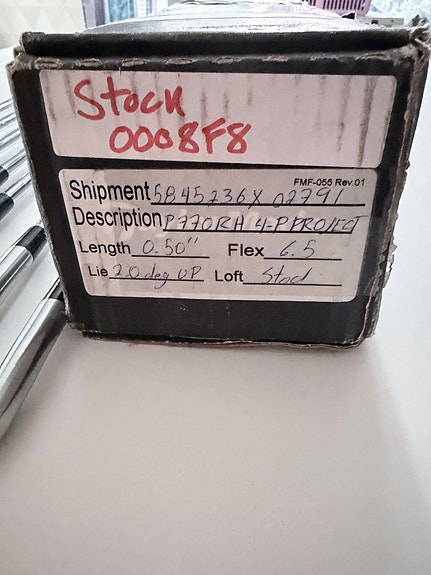 Stock
0008F8
FMF-055 Rev.01
Shipment 5845236X 02791
Description P770RH 4-P PROJECT
Length 0.50" Flex 6.5
Lie 2.0 deg UP Loft Stnd